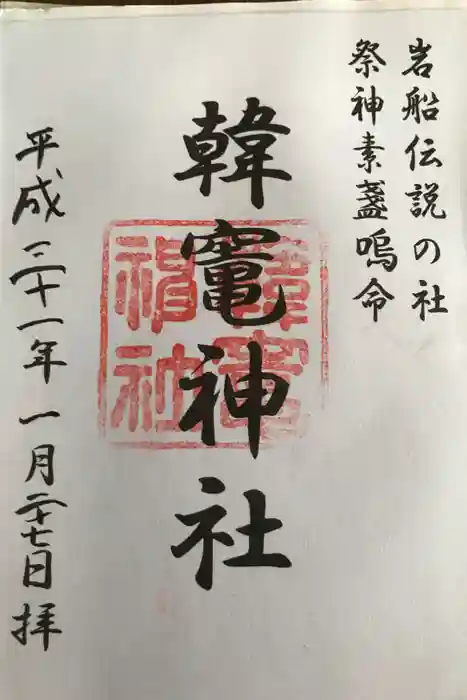 岩船伝説の社
祭神素盞嗚命
韓竈神社
平成三十一年一月二十七日拝